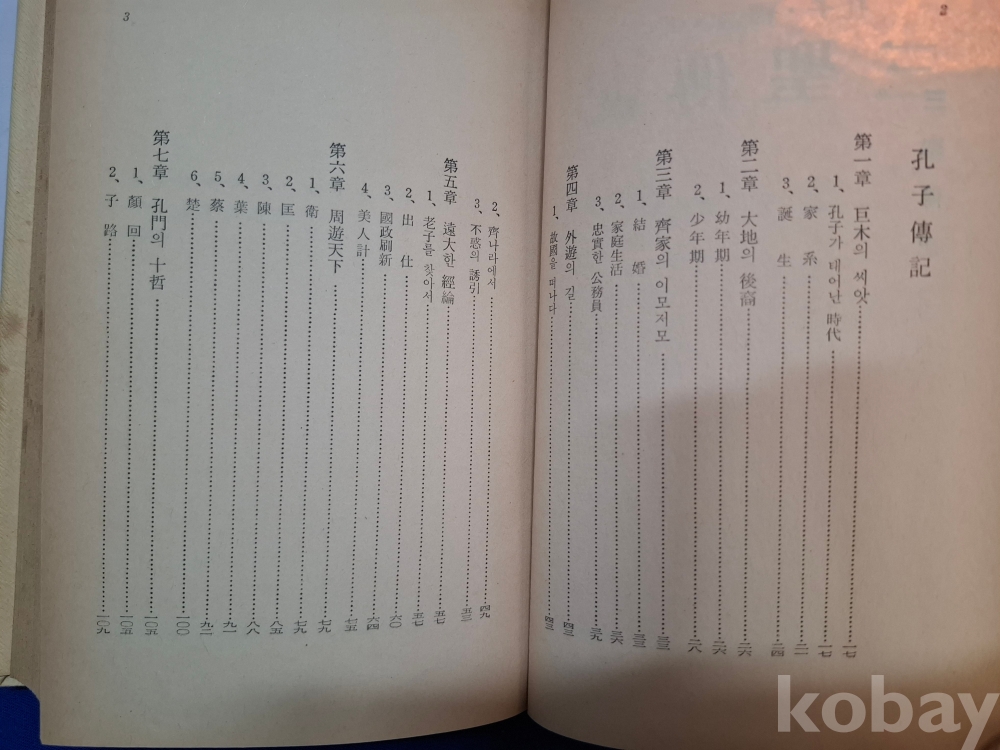 2
孔子傳記
第一章 巨木의 씨앗 一七
1、孔子가 태어난 時代 一七
2、家系 二一
3、誕生 二四
第二章 大地의 後裔 二六
1、幼年期 二六
2、少年期 二八
第三章 齊家의 이모저모 三三
1、結婚 三三
2、家庭生活 三六
3、忠實한 公務員 三九
第四章 外遊의 길 四三
1、故國을 떠나다 四三
3
2、齊나라에서 四九
3、不惑의 誘引 五三
第五章 遠大한 經論 五七
1、老子를 찾아서 五七
2、出仕 六〇
3、國政刷新 六四
4、美人計 七五
第六章 周遊天下 七九
1、衛 七九
2、匡 八五
3、陳 八八
4、葉 九一
5、蔡 九二
6、楚 一〇〇
第七章 孔門의 十哲 一〇五
1、顏回 一〇五
2、子路 一〇九
kobay